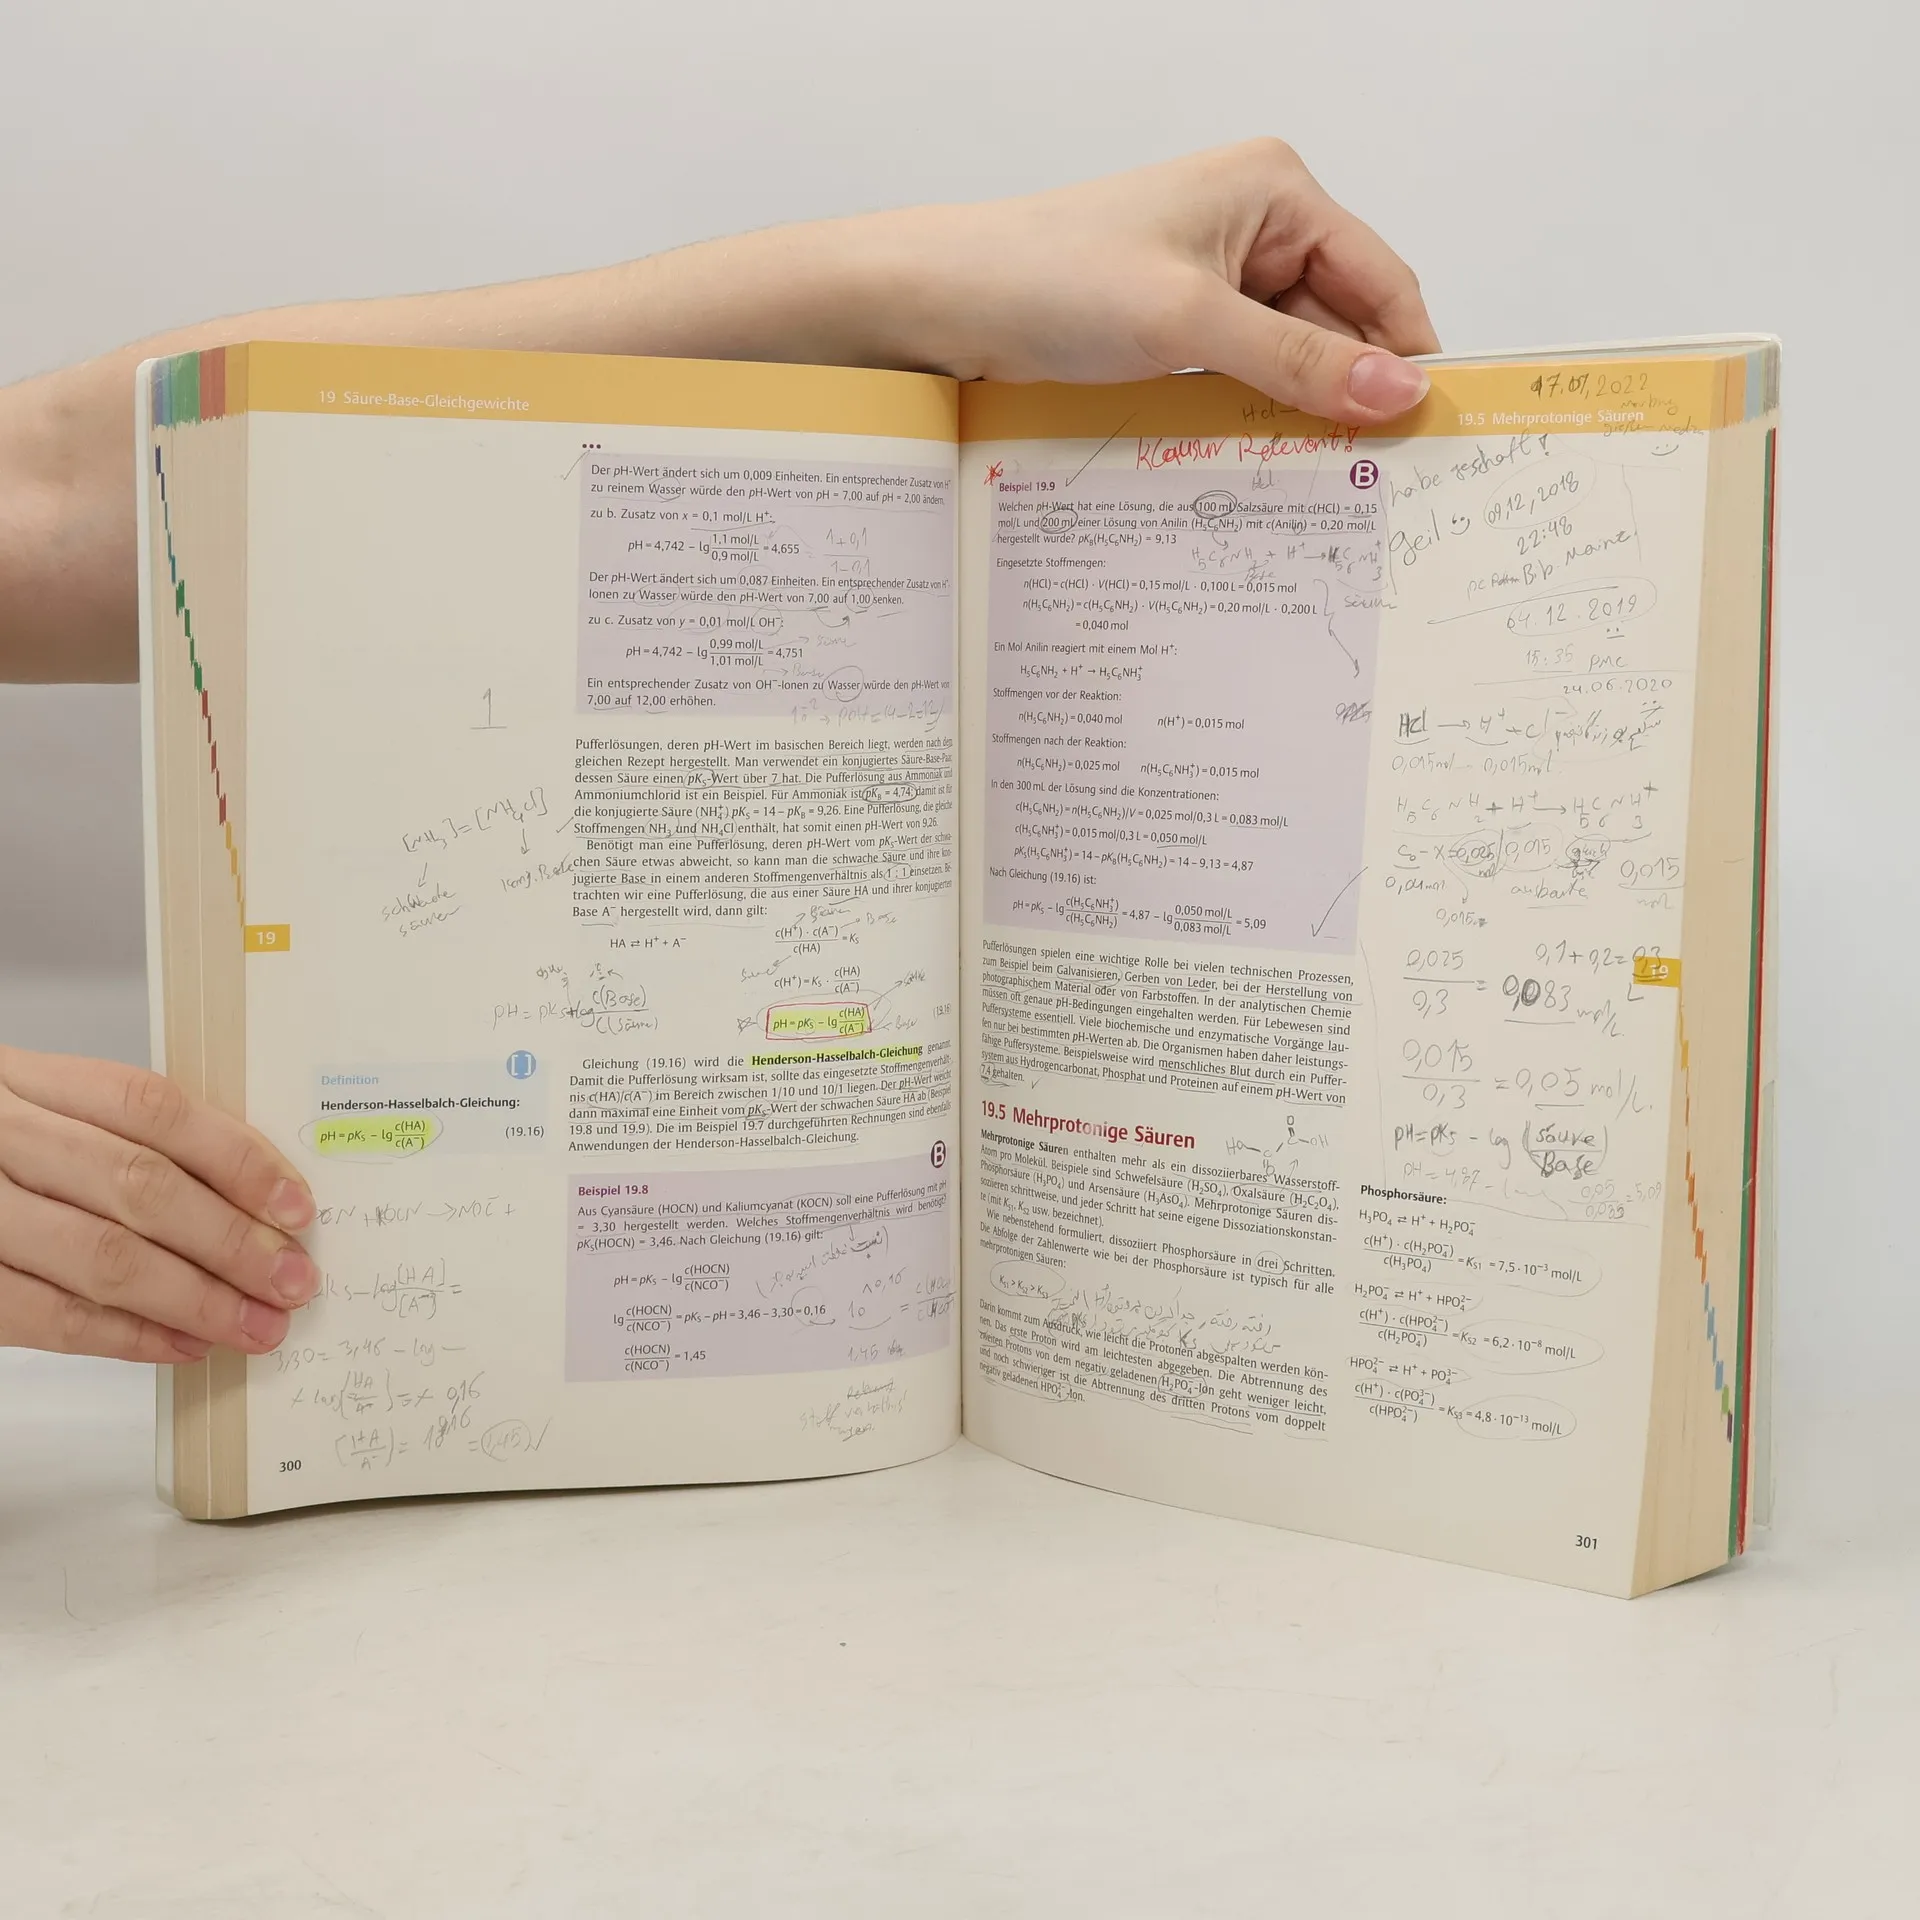 19 Säure-Base-Gleichgewichte
•••
Der pH-Wert ändert sich um 0,009 Einheiten. Ein entsprechender Zusatz von H⁺
zu reinem Wasser würde den pH-Wert von pH = 7,00 auf pH = 2,00 ändern.
zu b. Zusatz von x = 0,1 mol/L H⁺:
pH = 4,742 – lg 1,1 mol/L / 0,9 mol/L = 4,655
1+0,1
1-0,1
Der pH-Wert ändert sich um 0,087 Einheiten. Ein entsprechender Zusatz von H⁺-
Ionen zu Wasser würde den pH-Wert von 7,00 auf 1,00 senken.
zu c. Zusatz von y = 0,01 mol/L OH⁻:
pH = 4,742 – lg 0,99 mol/L / 1,01 mol/L = 4,751
Ein entsprechender Zusatz von OH⁻-Ionen zu Wasser würde den pH-Wert von
7,00 auf 12,00 erhöhen.
10⁻² → pOH = 14-2=12
1
Pufferlösungen, deren pH-Wert im basischen Bereich liegt, werden nach dem
gleichen Rezept hergestellt. Man verwendet ein konjugiertes Säure-Base-Paar,
dessen Säure einen pKₛ-Wert über 7 hat. Die Pufferlösung aus Ammoniak und
Ammoniumchlorid ist ein Beispiel. Für Ammoniak ist pK_B = 4,74; damit ist für
die konjugierte Säure (NH₄⁺) pKₛ = 14 – pK_B = 9,26. Eine Pufferlösung, die gleiche
Stoffmengen NH₃ und NH₄Cl enthält, hat somit einen pH-Wert von 9,26.
Benötigt man eine Pufferlösung, deren pH-Wert vom pKₛ-Wert der schwa-
chen Säure etwas abweicht, so kann man die schwache Säure und ihre kon-
jugierte Base in einem anderen Stoffmengenverhältnis als 1 : 1 einsetzen. Be-
trachten wir eine Pufferlösung, die aus einer Säure HA und ihrer konjugierten
Base A⁻ hergestellt wird, dann gilt:
[NH₃]=[NH₄Cl]
konj. Base
schwache
säure
HA ⇌ H⁺ + A⁻
c(H⁺) · c(A⁻) / c(HA) = Kₛ
c(H⁺) = Kₛ · c(HA) / c(A⁻)
pH = pKₛ + log c(Base) / c(Säure)
pH = pKₛ – lg c(HA) / c(A⁻)
(19.16)
Base
Definition
Henderson-Hasselbalch-Gleichung:
pH = pKₛ – lg c(HA) / c(A⁻) (19.16)
Gleichung (19.16) wird die Henderson-Hasselbalch-Gleichung genannt.
Damit die Pufferlösung wirksam ist, sollte das eingesetzte Stoffmengenverhält-
nis c(HA)/c(A⁻) im Bereich zwischen 1/10 und 10/1 liegen. Der pH-Wert weicht
dann maximal eine Einheit vom pKₛ-Wert der schwachen Säure HA ab (Beispiel
19.8 und 19.9). Die im Beispiel 19.7 durchgeführten Rechnungen sind ebenfalls
Anwendungen der Henderson-Hasselbalch-Gleichung.
B
Beispiel 19.8
Aus Cyansäure (HOCN) und Kaliumcyanat (KOCN) soll eine Pufferlösung mit pH
= 3,30 hergestellt werden. Welches Stoffmengenverhältnis wird benötigt?
pKₛ(HOCN) = 3,46. Nach Gleichung (19.16) gilt:
pH = pKₛ – lg c(HOCN) / c(NCO⁻)
lg c(HOCN) / c(NCO⁻) = pKₛ – pH = 3,46 – 3,30 = 0,16
c(HOCN) / c(NCO⁻) = 1,45
3,30 = 3,46 - log
300
17.07.2022
19.5 Mehrprotonige Säuren
HCl
Klausur Relevant!
B
Beispiel 19.9
Welchen pH-Wert hat eine Lösung, die aus 100 mL Salzsäure mit c(HCl) = 0,15
mol/L und 200 mL einer Lösung von Anilin (H₅C₆NH₂) mit c(Anilin) = 0,20 mol/L
hergestellt wurde? pK_B(H₅C₆NH₂) = 9,13
Eingesetzte Stoffmengen:
n(HCl) = c(HCl) · V(HCl) = 0,15 mol/L · 0,100 L = 0,015 mol
n(H₅C₆NH₂) = c(H₅C₆NH₂) · V(H₅C₆NH₂) = 0,20 mol/L · 0,200 L
= 0,040 mol
Ein Mol Anilin reagiert mit einem Mol H⁺:
H₅C₆NH₂ + H⁺ → H₅C₆NH₃⁺
Stoffmengen vor der Reaktion:
n(H₅C₆NH₂) = 0,040 mol n(H⁺) = 0,015 mol
Stoffmengen nach der Reaktion:
n(H₅C₆NH₂) = 0,025 mol n(H₅C₆NH₃⁺) = 0,015 mol
In den 300 mL der Lösung sind die Konzentrationen:
c(H₅C₆NH₂) = n(H₅C₆NH₂)/V = 0,025 mol/0,3 L = 0,083 mol/L
c(H₅C₆NH₃⁺) = 0,015 mol/0,3 L = 0,050 mol/L
pKₛ(H₅C₆NH₃⁺) = 14 – pK_B(H₅C₆NH₂) = 14 – 9,13 = 4,87
Nach Gleichung (19.16) ist:
pH = pKₛ – lg c(H₅C₆NH₃⁺) / c(H₅C₆NH₂) = 4,87 – lg 0,050 mol/L / 0,083 mol/L = 5,09
Pufferlösungen spielen eine wichtige Rolle bei vielen technischen Prozessen,
zum Beispiel beim Galvanisieren, Gerben von Leder, bei der Herstellung von
photographischem Material oder von Farbstoffen. In der analytischen Chemie
müssen oft genaue pH-Bedingungen eingehalten werden. Für Lebewesen sind
Puffersysteme essentiell. Viele biochemische und enzymatische Vorgänge lau-
fen nur bei bestimmten pH-Werten ab. Die Organismen haben daher leistungs-
fähige Puffersysteme. Beispielsweise wird menschliches Blut durch ein Puffer-
system aus Hydrogencarbonat, Phosphat und Proteinen auf einem pH-Wert von
7,4 gehalten.
19.5 Mehrprotonige Säuren
Mehrprotonige Säuren enthalten mehr als ein dissoziierbares Wasserstoff-
Atom pro Molekül. Beispiele sind Schwefelsäure (H₂SO₄), Oxalsäure (H₂C₂O₄),
Phosphorsäure (H₃PO₄) und Arsensäure (H₃AsO₄). Mehrprotonige Säuren dis-
soziieren schrittweise, und jeder Schritt hat seine eigene Dissoziationskonstan-
te (mit Kₛ₁, Kₛ₂ usw. bezeichnet).
Wie nebenstehend formuliert, dissoziiert Phosphorsäure in drei Schritten.
Die Abfolge der Zahlenwerte wie bei der Phosphorsäure ist typisch für alle
mehrprotonigen Säuren:
Kₛ₁ > Kₛ₂ > Kₛ₃
Darin kommt zum Ausdruck, wie leicht die Protonen abgespalten werden kön-
nen. Das erste Proton wird am leichtesten abgegeben. Die Abtrennung des
zweiten Protons vom dem negativ geladenen H₂PO₄⁻-Ion geht weniger leicht,
und noch schwieriger ist die Abtrennung des dritten Protons vom doppelt
negativ geladenen HPO₄²⁻-Ion.
habe geschaft!
Geil
09,12,2018
22:48
Bib. Mainz
04.12.2019
15:35
24.06.2020
HCl → H⁺ + Cl⁻
0,015mol 0,015mol
H₅C₆NH₂ + H⁺ → H₅C₆NH₃⁺
0,015
mol
0,025 / 0,3 = 0,083 mol/L
0,1+0,2=0,3 L
19
19
0,015 / 0,3 = 0,05 mol/L.
pH=pKₛ - log (Säure / Base)
Phosphorsäure:
H₃PO₄ ⇌ H⁺ + H₂PO₄⁻
c(H⁺) · c(H₂PO₄⁻) / c(H₃PO₄) = Kₛ₁ = 7,5 · 10⁻³ mol/L
H₂PO₄⁻ ⇌ H⁺ + HPO₄²⁻
c(H⁺) · c(HPO₄²⁻) / c(H₂PO₄⁻) = Kₛ₂ = 6,2 · 10⁻⁸ mol/L
HPO₄²⁻ ⇌ H⁺ + PO₄³⁻
c(H⁺) · c(PO₄³⁻) / c(HPO₄²⁻) = Kₛ₃ = 4,8 · 10⁻¹³ mol/L
301